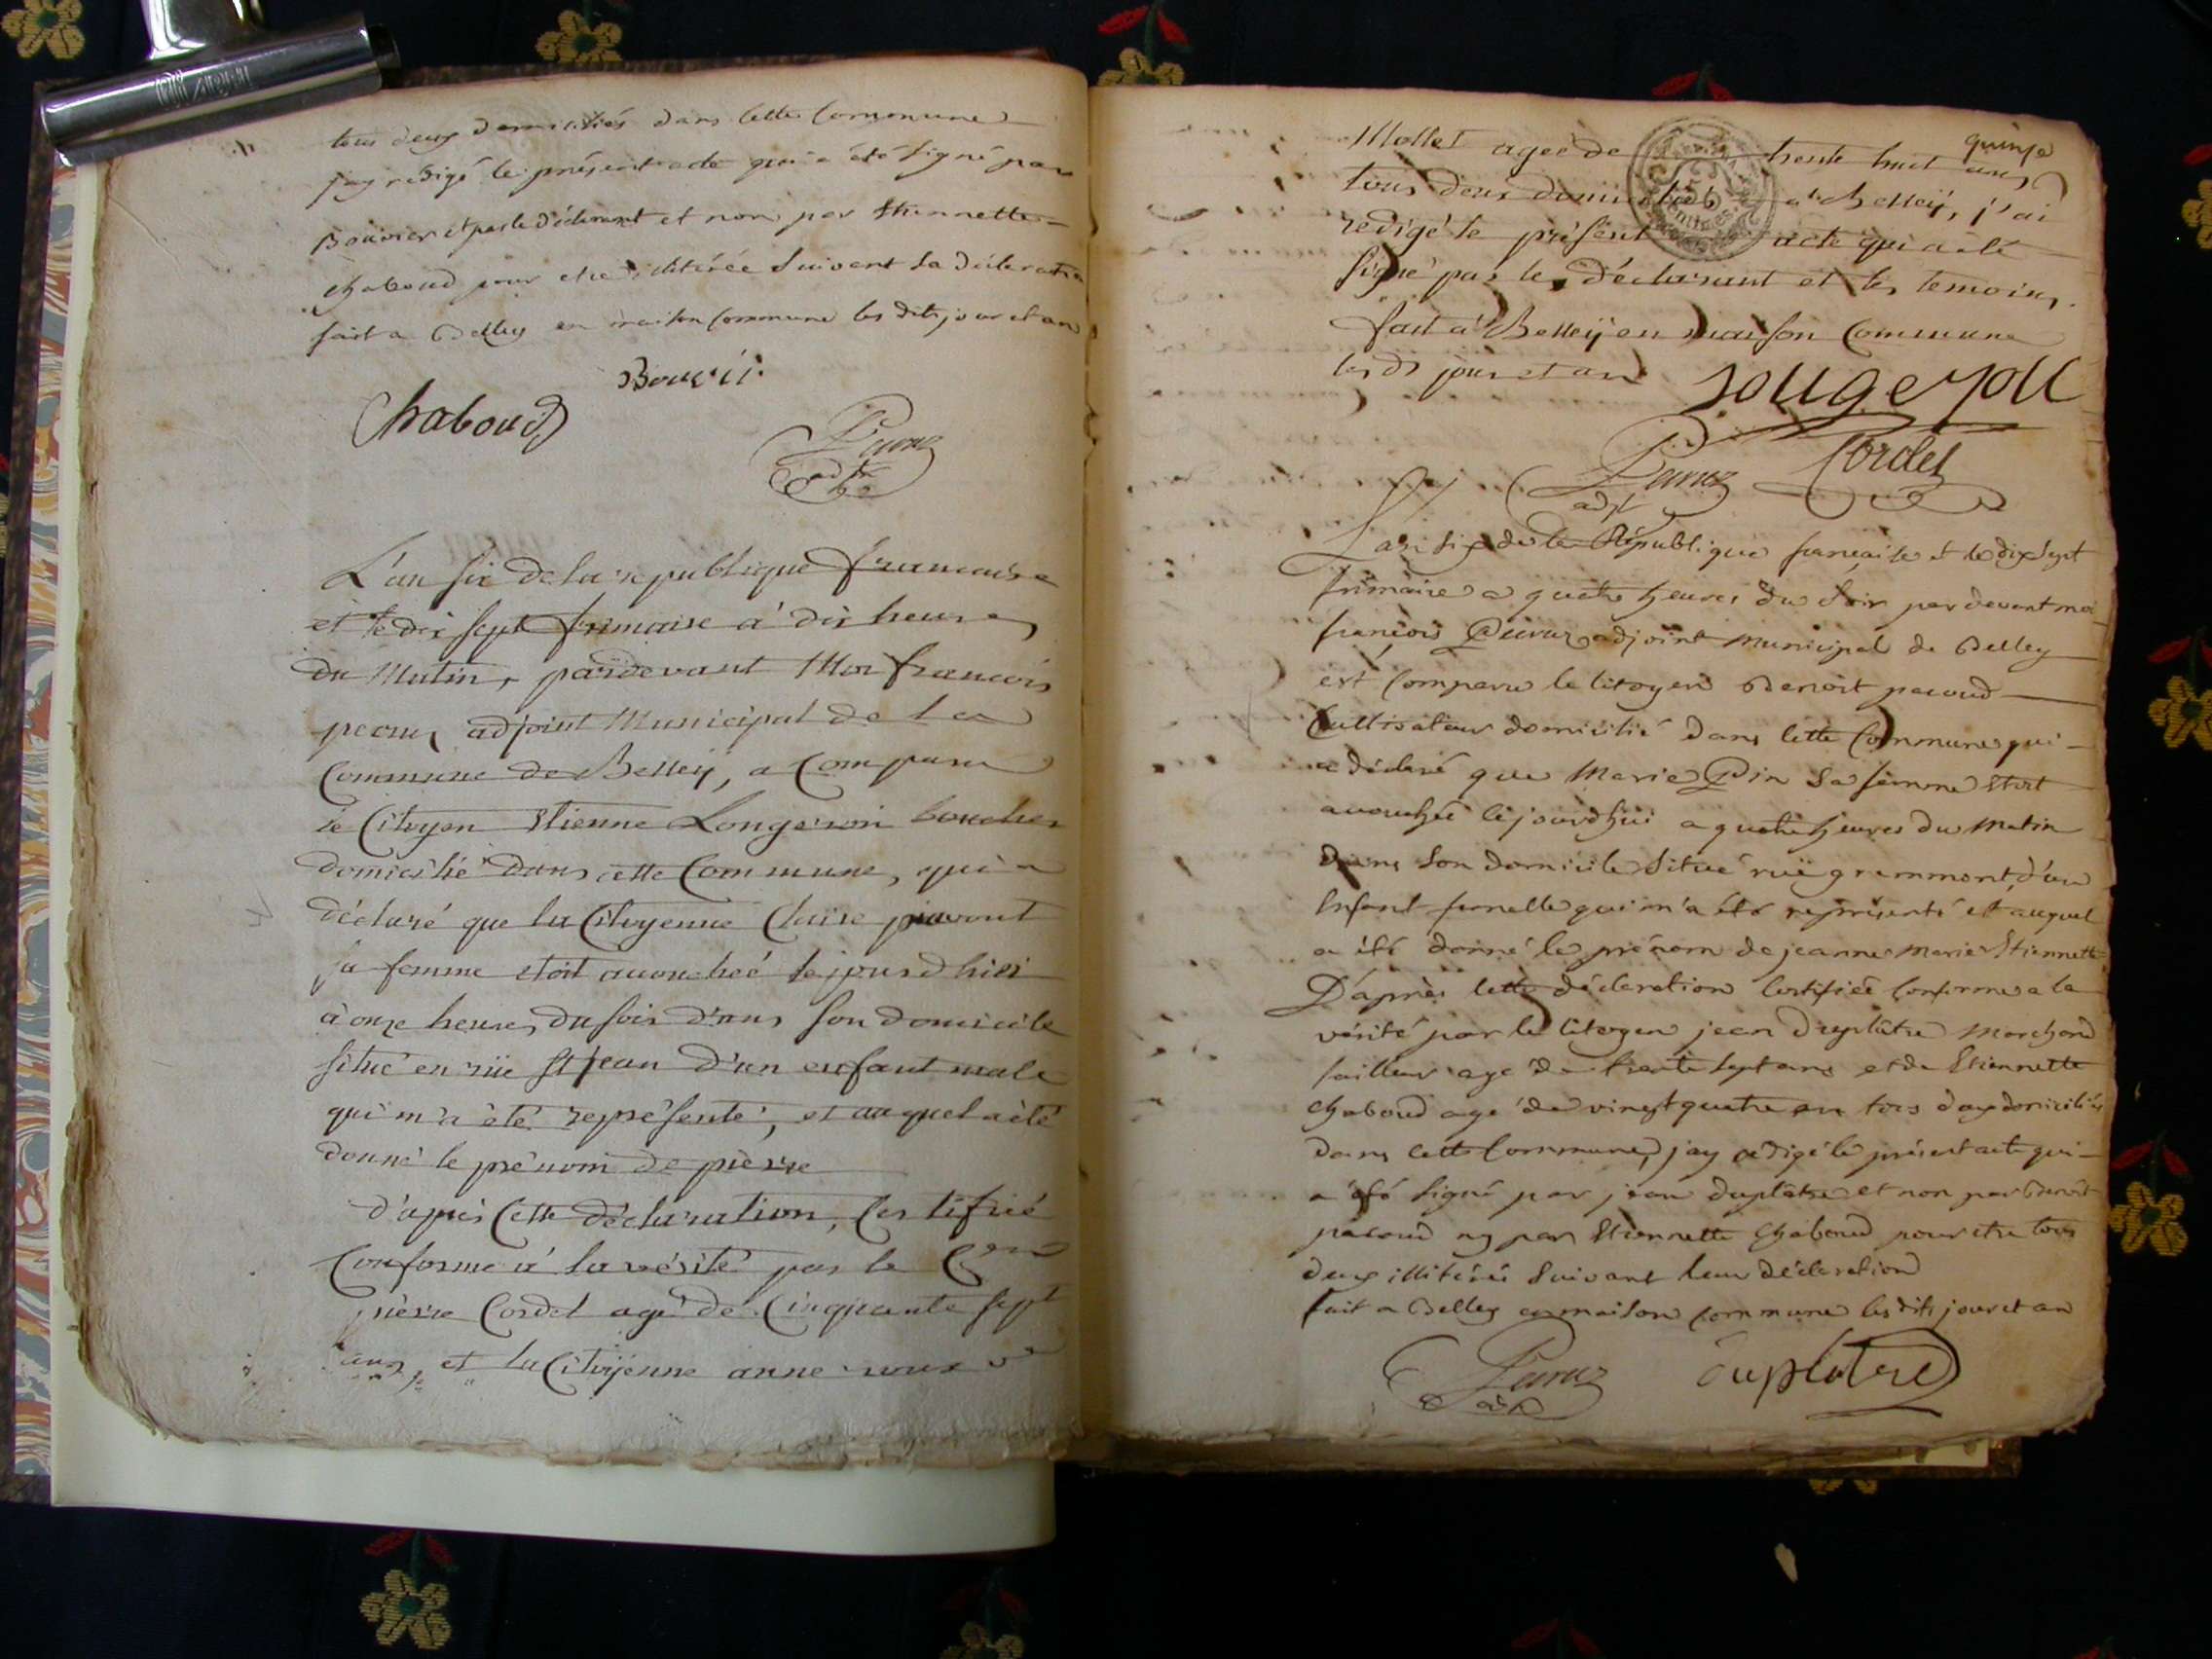 tous deux domiciliés dans cette Commune
j'ay redigé le présent acte qui a été signé par
Bouvier et par le déclarant et non par Etiennette
chaboud pour etre illitérée suivant sa declaration
fait a Belley en maison commune les dits jour et an
Chaboud
Peruz
adjt
L'an six de la republique francaise
et le dix sept frimaire à dix heures
du Matin, pardevant Moi francois
peruz adjoint Municipal de la
Commune de Belley, a comparu
le Citoyen Etienne Longeron boucher
domicilié dans cette Commune, qui a
déclaré que la Citoyenne Claire
sa femme etoit accouchée le jourd'hier
à onze heures du soir dans son domicile
situé en rüe St jean d'un enfant male
qui m'a été représenté, et auquel a été
donné le prénom de pierre
d'apres Cette déclaration, Certifié
Conforme à la vérité par le Cen
pierre Cordel agé de Cinquante sept
ans, et la Citoÿenne anne
quinze
Mollet agée de trente huit ans
tous deux domiciliés a Belleÿ, j'ai
redigé le présent acte qui a été
signé par le déclarant et les temoins.
fait à Belleÿ en maison Commune
les ds jour et an
Peruz Cordel
adjt
L'an six de la République française et le dix sept
frimaire a quatre heures du soir par devant moi
françois Peruz adjoint municipal de Belley
est comparu le citoyen Benoit pacoud
Cultivateur domicilié dans cette Commune qui
a déclaré que Marie Pin sa femme etoit
accouchée cejourdhui a quatre heures du matin
dans son domicile situé rüe grammont, d'un
Enfant femelle qui m'a été représenté et auquel
a été donné le prénom de jeanne Marie Etiennette
D'après cette déclaration Certifiée Conforme a la
vérité par le citoyen jean Duplâtre Marchand
tailleur agé de trente sept ans et de Etiennette
chaboud agé de vingt quatre an tous deux domiciliés
dans cette Commune, j'ay redigé le présent acte qui
a été signé par jean duplâtre et non par Benoit
pacoud ny par Etiennette Chaboud pour etre tous
deux illitérés suivant leur déclaration
fait a Belley en maison commune les dits jour et an
Peruz duplatre
adjt